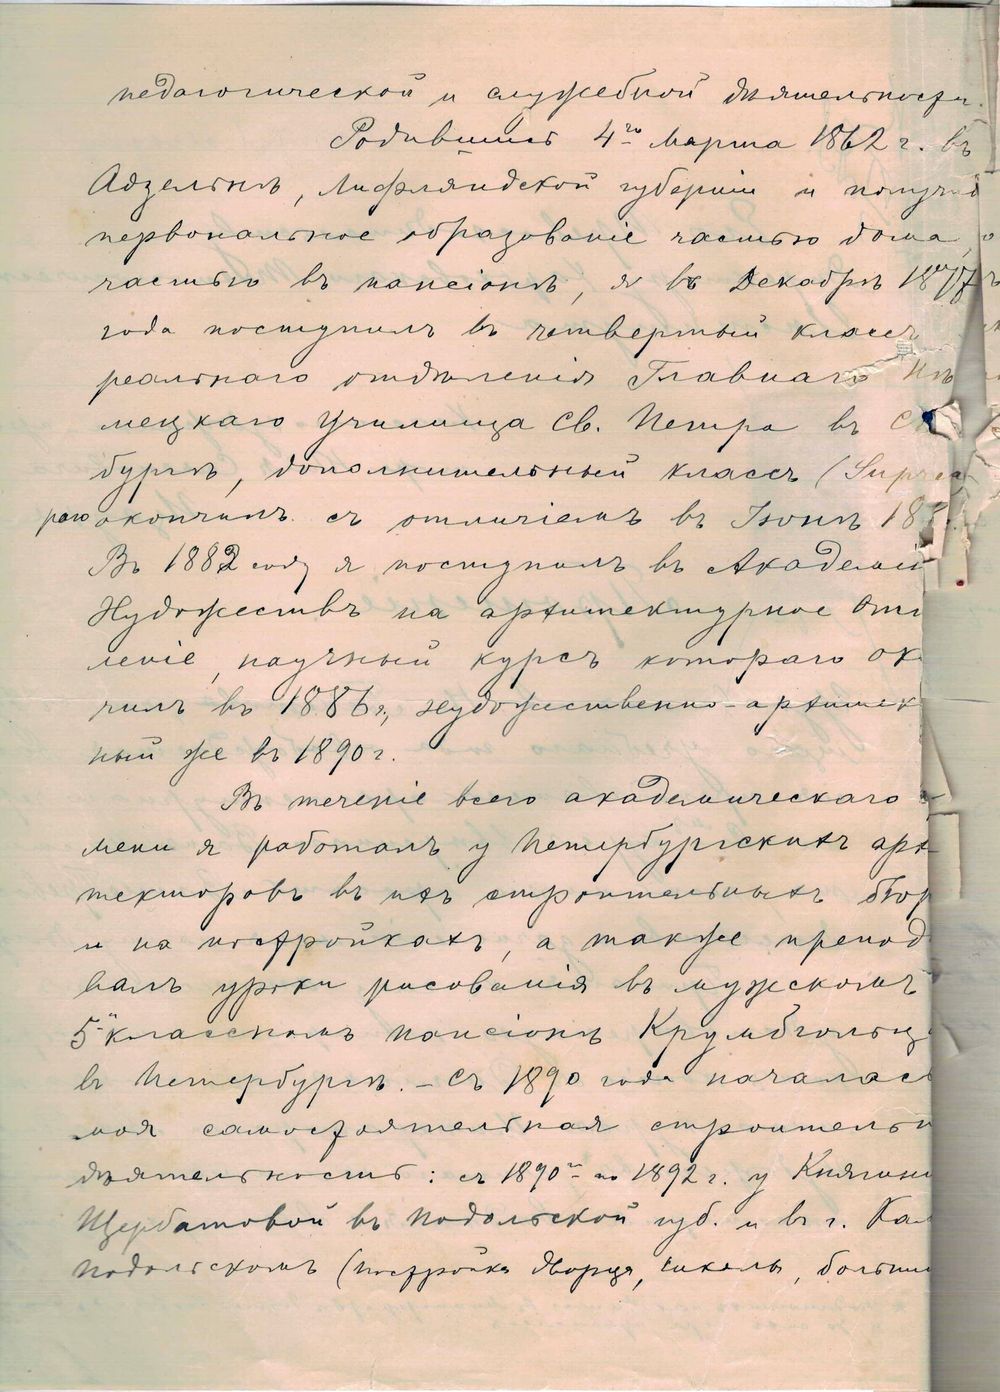 педагогической и служебной дѣятельности.
Родившись 4го Марта 1862 г. въ
Адзельнъ, Лифляндской губерніи и получив
первоначальное образованіе частью дома, а
частью въ пансіонѣ, я въ Декабрѣ 1877
года поступилъ въ четвертый классъ
реальнаго отдѣленія Главнаго Нѣ
мецкаго Училища Св. Петра въ С
бургѣ, дополнительный классъ (
раго окончилъ съ отличіемъ въ Іюнѣ 188
Въ 1882 году я поступилъ въ Академи
Художествъ на архитектурное Отд
леніе, научный курсъ котораго ок
чилъ въ 1886 г., художественно-архитек
ный же въ 1890 г.
Въ теченіе всего академическаго
мени я работалъ у Петербургскихъ арх
текторовъ въ ихъ строительныхъ бюр
и на постройкахъ, а также препод
валъ уроки рисованія въ мужскомъ
5и классномъ пансіонѣ Крумбгольц
въ Петербургѣ. – Съ 1890 года началас
моя самостоятельная строительн
дѣятельность: съ 1890г по 1892 г. у Княгини
Щербатовой въ Подольской губ. и въ г. Кам
Подольскомъ (постройка дворца, школы, больни